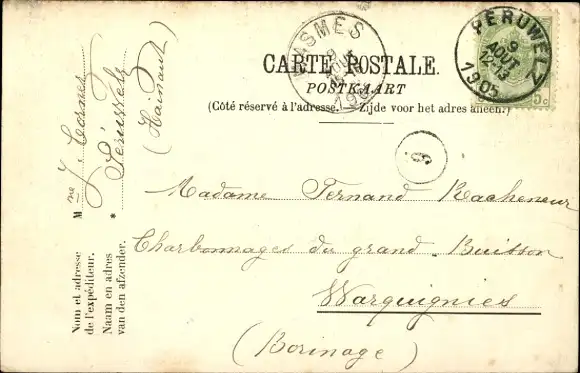 WASMES
9
AOUT
190
PERUWELZ
9
AOUT
12-13
1905
5c
CARTE POSTALE.
POSTKAART
(Côté réservé à l'adresse. — Zijde voor het adres alleen.)
6
Madame Fernand Racheneur
Charbonnages du grand-Buisson
Warquignies
(Borinage)
Nom et adresse
de l'expéditeur.
Naam en adres
van den afzender.
Mme
*
Péruwelz
(Hainaut)